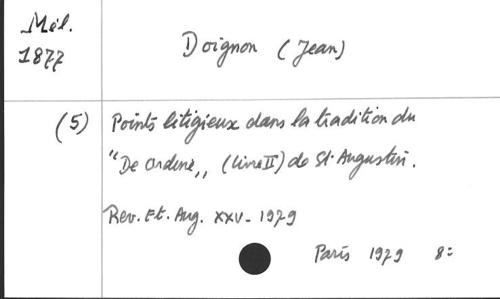 Mél.
1877
Doignon (Jean)
(5) Points litigieux dans la tradition du
"De ordine,, (livre II) de St Augustin.
Rev. Et. Aug. XXV - 1979
Paris 1979 8: